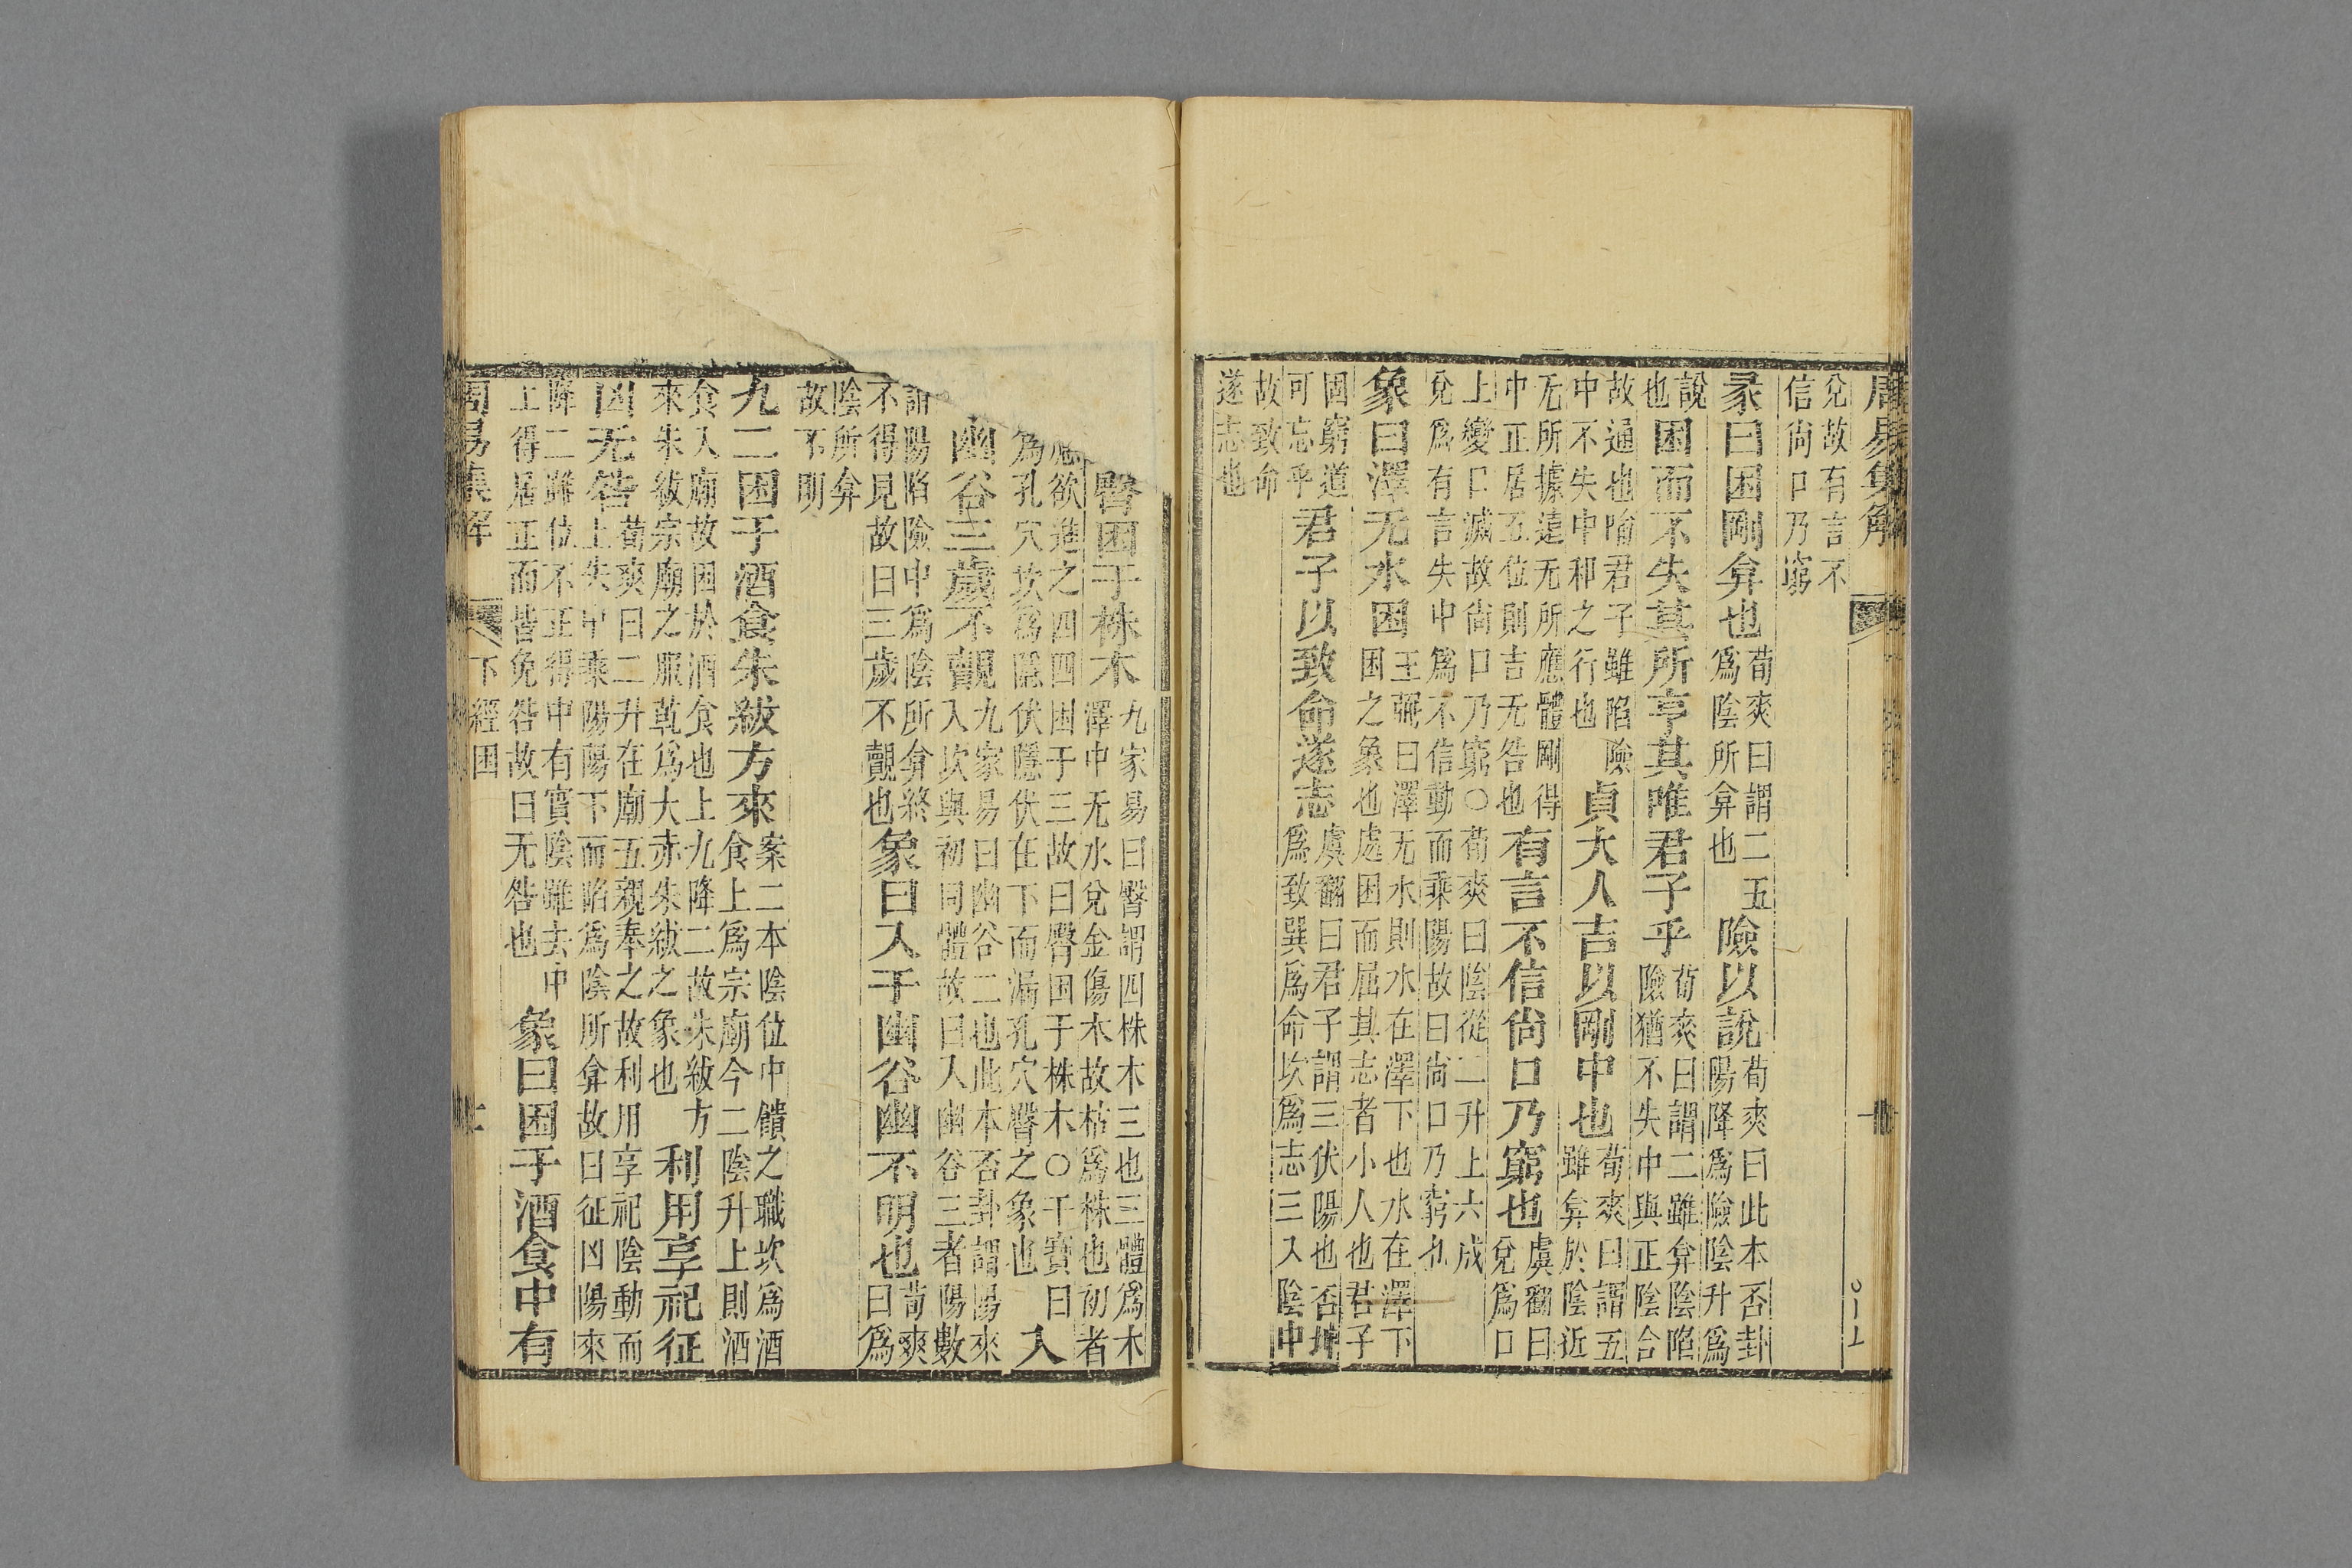 周易集解
兌故有言不
信尚口乃窮
彖曰困剛弇也
荀爽曰謂二五
為陰所弇也
險以說
荀爽曰此本否卦
陽降為險陰升為
說
也
困而不失其所亨其唯君子乎
荀爽曰謂二雖弇陰陷
險猶不失中與正陰合
故通也喻君子雖陷險
中不失中和之行也
貞大人吉以剛中也
荀爽曰謂五
雖弇於陰近
无所據遠无所應體剛得
中正居五位則吉无咎也
有言不信尚口乃窮也
虞翻曰
兌為口
上變口滅故尚口乃窮○荀爽曰陰從二升上六成
兌為有言失中為不信動而乘陽故曰尚口乃窮也
象曰澤无水困
王弼曰澤无水則水在澤下也水在澤下
困之象也處困而屈其志者小人也君子
固窮道
可忘乎
君子以致命遂志
虞翻曰君子謂三伏陽也否坤
為致巽為命坎為志三入陰中
故致命
遂志也
臀困于株木
九家易曰臀謂四株木三也三體為木
澤中无水兌金傷木故枯為株也初者
應欲進之四四困于三故曰臀困于株木○干寶曰
為孔穴坎為隱伏隱伏在下而漏孔穴臀之象也
入
幽谷三歲不覿
九家易曰幽谷二也此本否卦謂陽來
入坎與初同體故曰入幽谷三者陽數
謂陽陷險中為陰所弇終
不得見故曰三歲不覿也
象曰入于幽谷幽不明也
荀爽
曰為
陰所弇
故不明
九二困于酒食朱紱方來
案二本陰位中饋之職坎為酒
食上為宗廟今二陰升上則酒
食入廟故困於酒食也上九降二故朱紱方
來朱紱宗廟之服乾為大赤朱紱之象也
利用享祀征
凶无咎
荀爽曰二升在廟五親奉之故利用享祀陰動而
上失中乘陽陽下而陷為陰所弇故曰征凶陽來
降二雖位不正得中有實陰雖去中
上得居正而皆免咎故曰无咎也
象曰困于酒食中有
周易集解 下經困